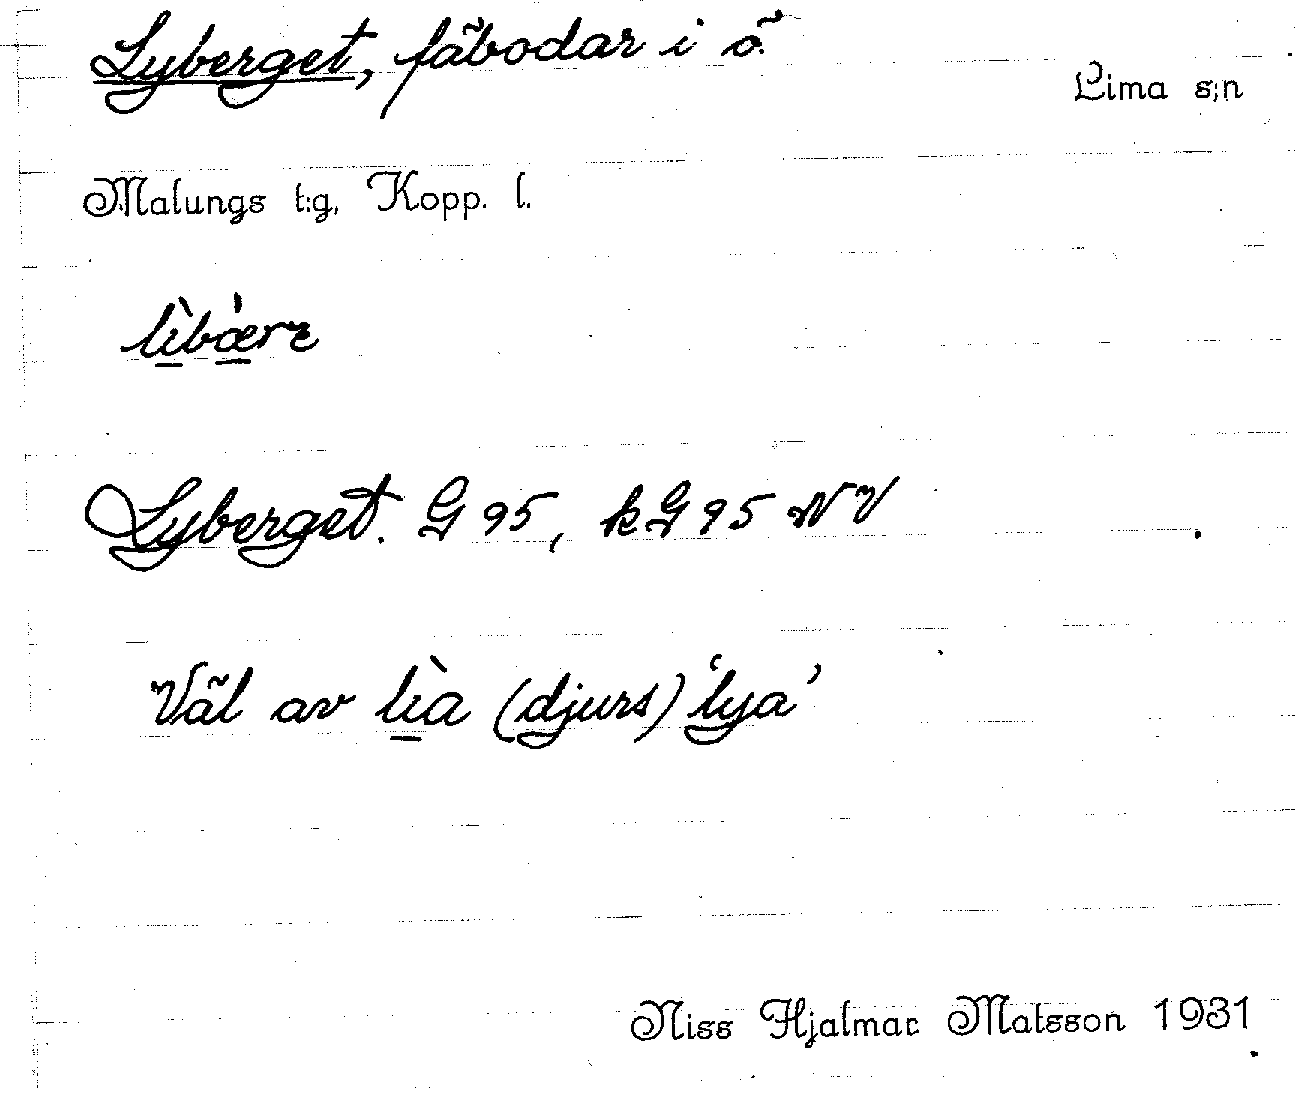 Lyberget, fäbodar i ö.
Lima s:n
Malungs t:g, Kopp. l.
lìbærɛ
Lyberget. G 95, kG 95 NV
Väl av lìa (djurs) 'lya'
Niss Hjalmar Matsson 1931